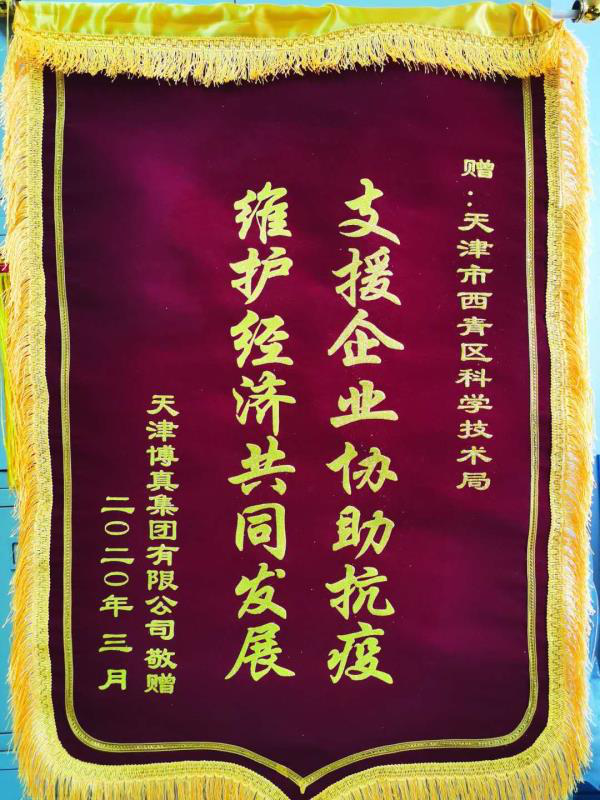 赠:天津市西青区科学技术局
支援企业协助抗疫
维护经济共同发展
天津博真集团有限公司敬赠
二〇二〇年三月